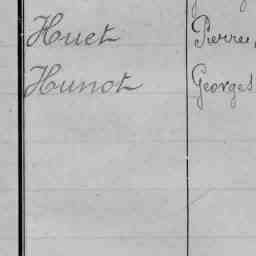 Huet Pierre,
Hunot Georges